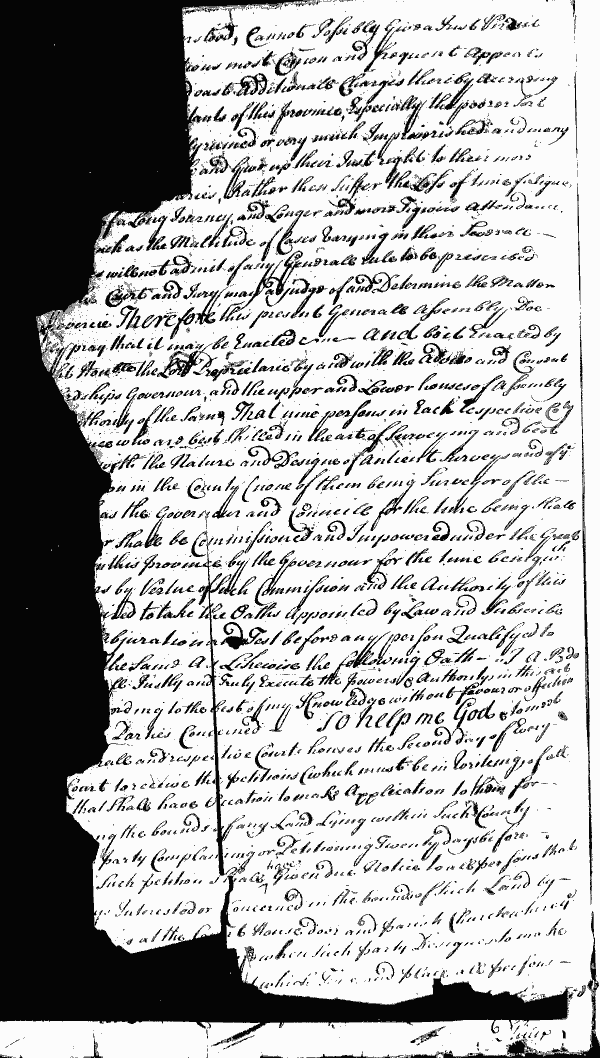 rstood, Cannot Possibly Give a Just Verdict
tions most Comon and frequent Appeals
d vast Additionall Charges thereby Accrueing
tants of this Province, Especially the poorer Sort
grieved or very much Impoverished and many
and Give up their Just right to their more
aries, Rather then Suffer the Loss of time fatigue,
of a Long Journey, and Longer and more Attendance.
uch as the Multitude of Cases Varying in their Severall
s will not admit of any Generall rule to be prescribed
Court and Jury may adjudge of and Determine the Matter
Therefore this present Generall Assembly Doe
pray that it may be Enacted And be it Enacted by
the Lord Proprietarie by and with the Advice and Consent
rdships Governour, and the upper and Lower houses of Assembly
thority of the Same That nine persons in Each respective Coty
nce who are best Skilled in the art of Surveying and best
with the Nature and Designe of Antient Surveys and of ye
on in the County (none of them being Surveyor of the
as the Governour and Councill for the time being shall
r Shall be Commissioned and Impowered under the Great
this Province by the Governour for the time being
s by Vertue of Such Commission and the Authority of this
ired to take the Oaths Appointed by Law and Subscribe
abjuration and Test before any person Qualifyed to
the Same As Likewise the following Oath - I A B do
Justly and Truly Execute the powers & Authority in this act
ording to the best of my Knowledge without favour or affection
Parties Concerned So help me God & to meet
and respective Court houses the Second day of Every
Court to receive the petitions (which must be in Writeing) of all
that Shall have Occation to make Application to them for
ng the bounds of any Land Lying within Such County
party Complaining or Petitioning Twenty days before
Such petition Shall have Given due Notice to all persons that
Interested or Concerned in the bounds of Such Land by
s at the Court House door and parish Church
when Such party Designes to make
which Time and place all persons